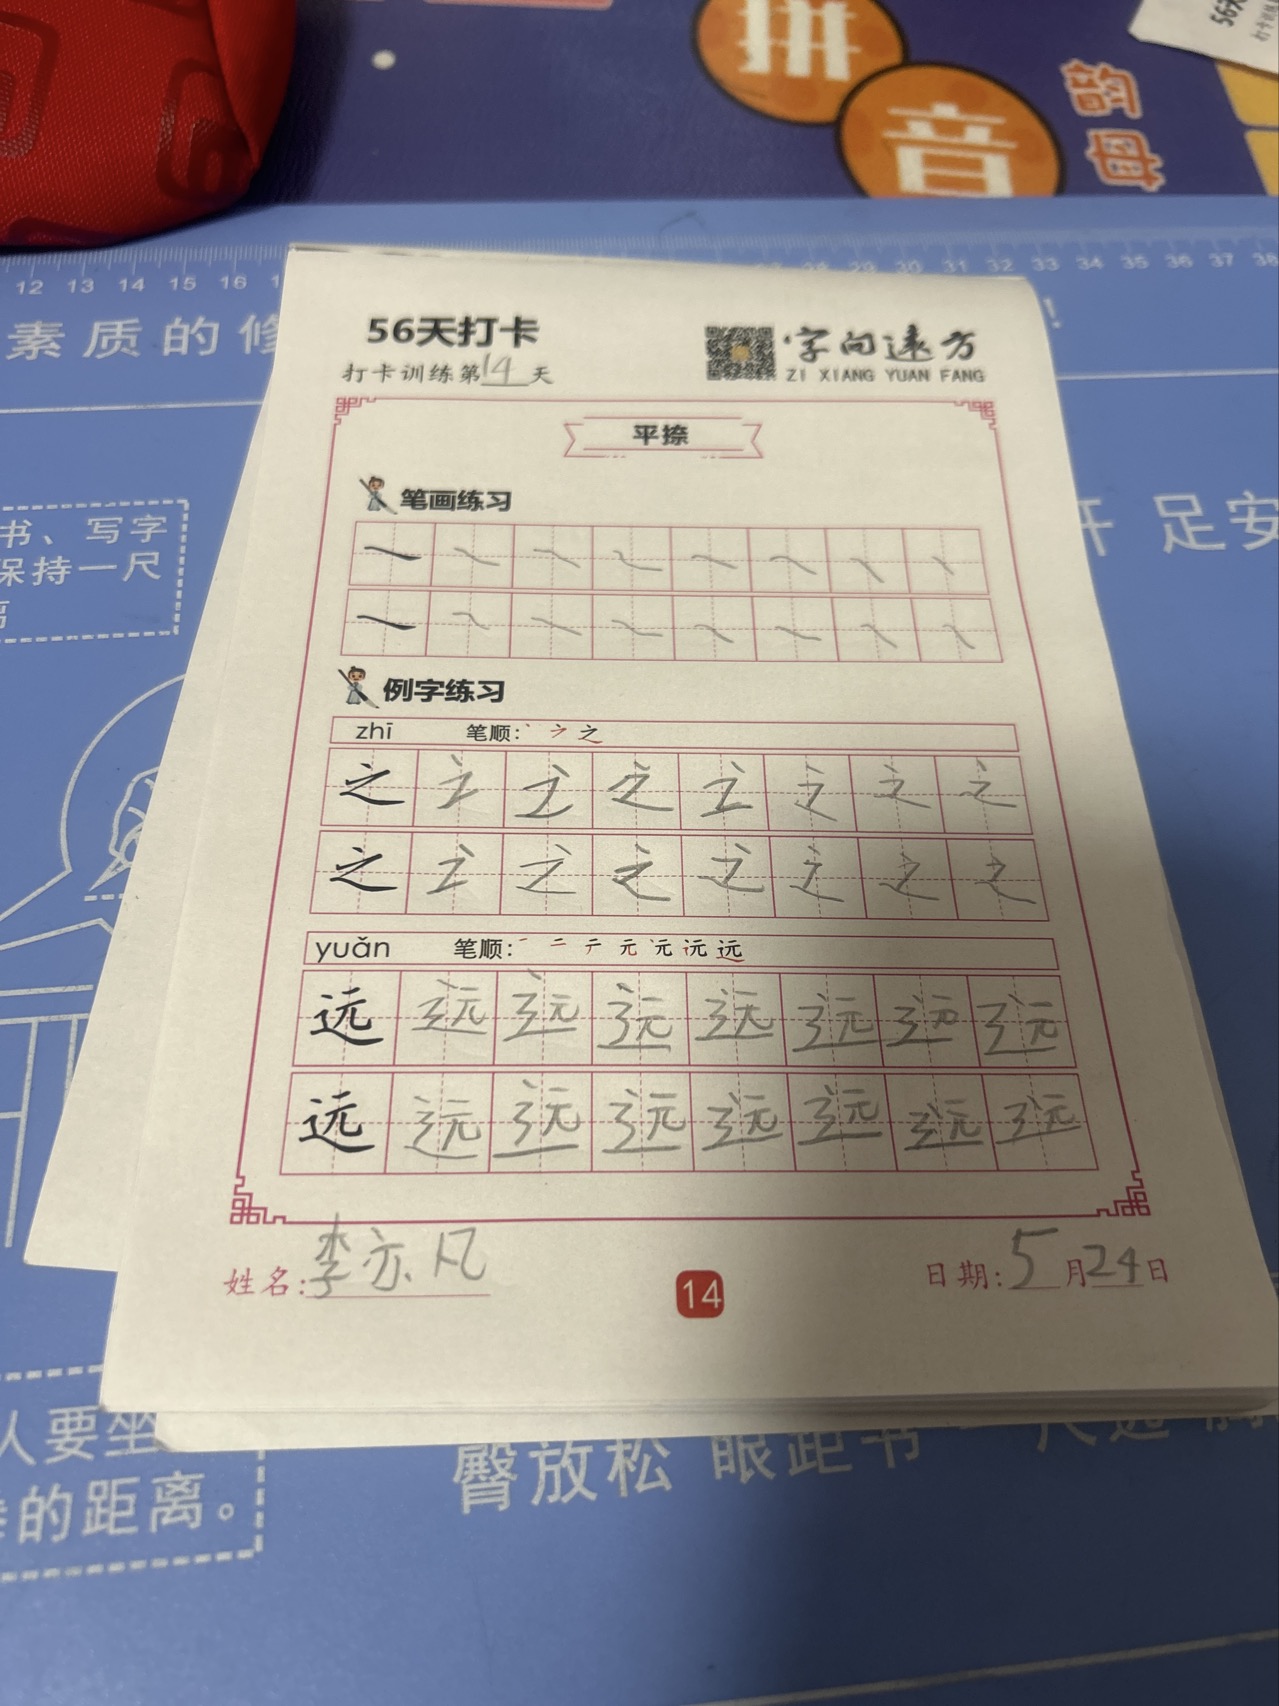 拼
音
韵母
56天
12 13 14 15 16 1
28 29 30 31 32 33 34 35 36 37 38
素质的修
!
56天打卡
打卡训练第14天
字向远方
ZI XIANG YUAN FANG
平捺
笔画练习
例字练习
zhī 笔顺: 丶 之
之 之 之 之 之 之 之 之
之 之 之 之 之 之 之 之
yuǎn 笔顺: 一 二 テ 元 远
远 远 远 远 远 远 远 远
远 远 远 远 远 远 远 远
姓名: 李亦凡
14
日期: 5月24日
书、写字
保持一尺
开 足安
人要坐
的距离。
臀放松 眼距书一尺远